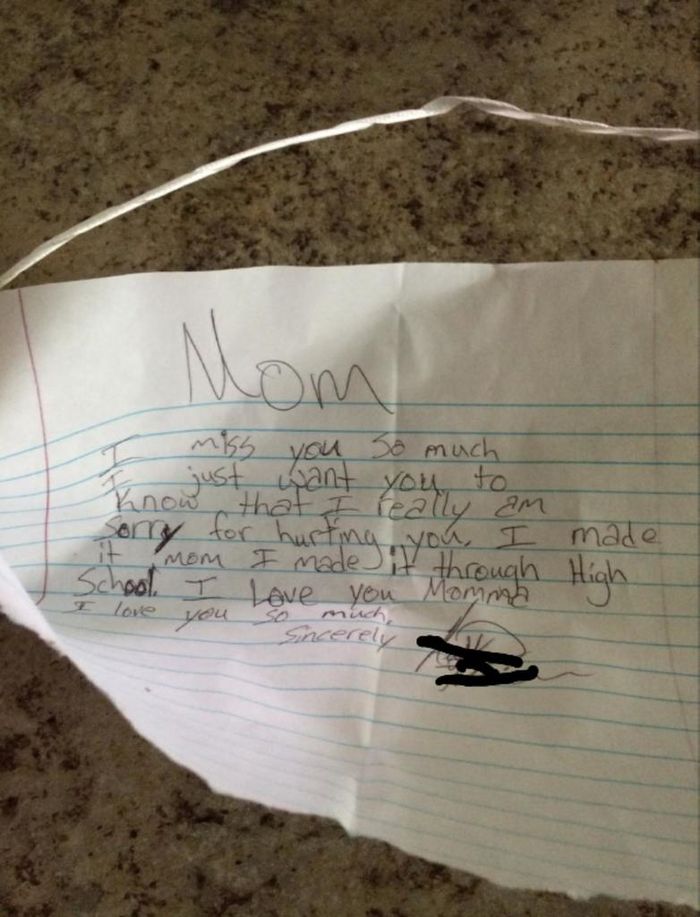 Mom
I miss you so much
I just want you to
Know that I really am
Sorry for hurting you, I made
it mom I made it through High
School. I Love you Momma
I love you so much,
Sincerely